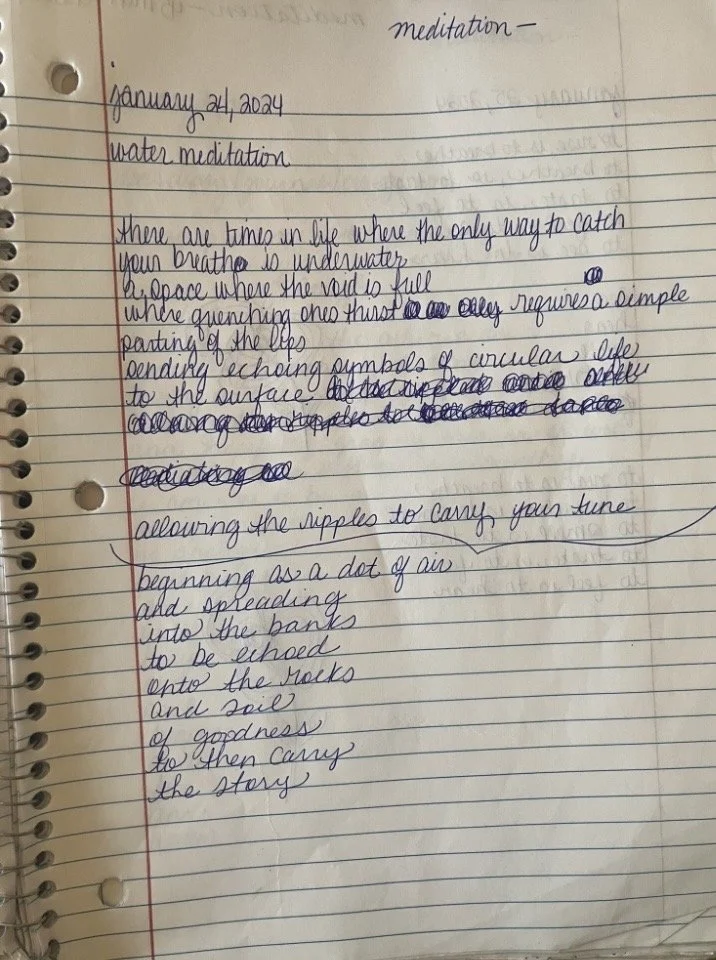 meditation —
january 24, 2024
water meditation
there are times in life where the only way to catch
your breath is underwater
a space where the void is full
where quenching ones thirst requires a simple
parting of the lips
sending echoing symbols of circular life
to the surface
allowing the ripples to carry your tune
beginning as a dot of air
and spreading
into the banks
to be echoed
onto the rocks
and soil
of goodness
to then carry
the story